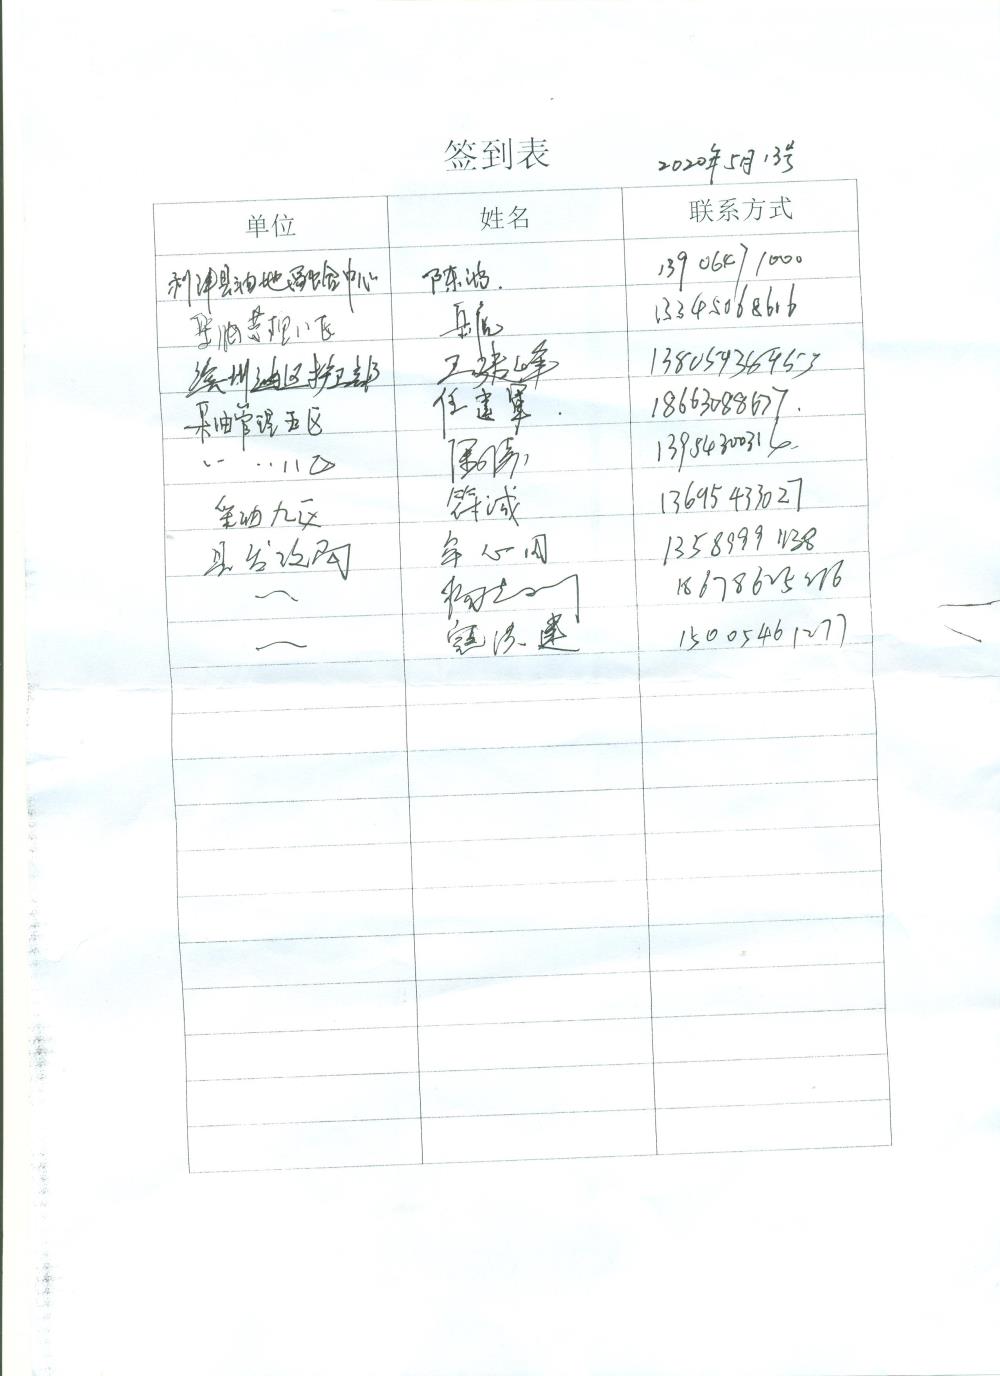 签到表
2020年5月13号
单位 姓名 联系方式
利津县油地融合中心 陈鸿. 13906471000
采油管理八区 13345068616
滨州油区护卫部 王 峰 13805436953
采油管理五区 任建军. 18663088677.
〃 〃八区 1395430031
采油九区 符诚 13695433027
县发改局 牟心国 13589991138
〜 18678625276
〜 寇洪建 15005461277